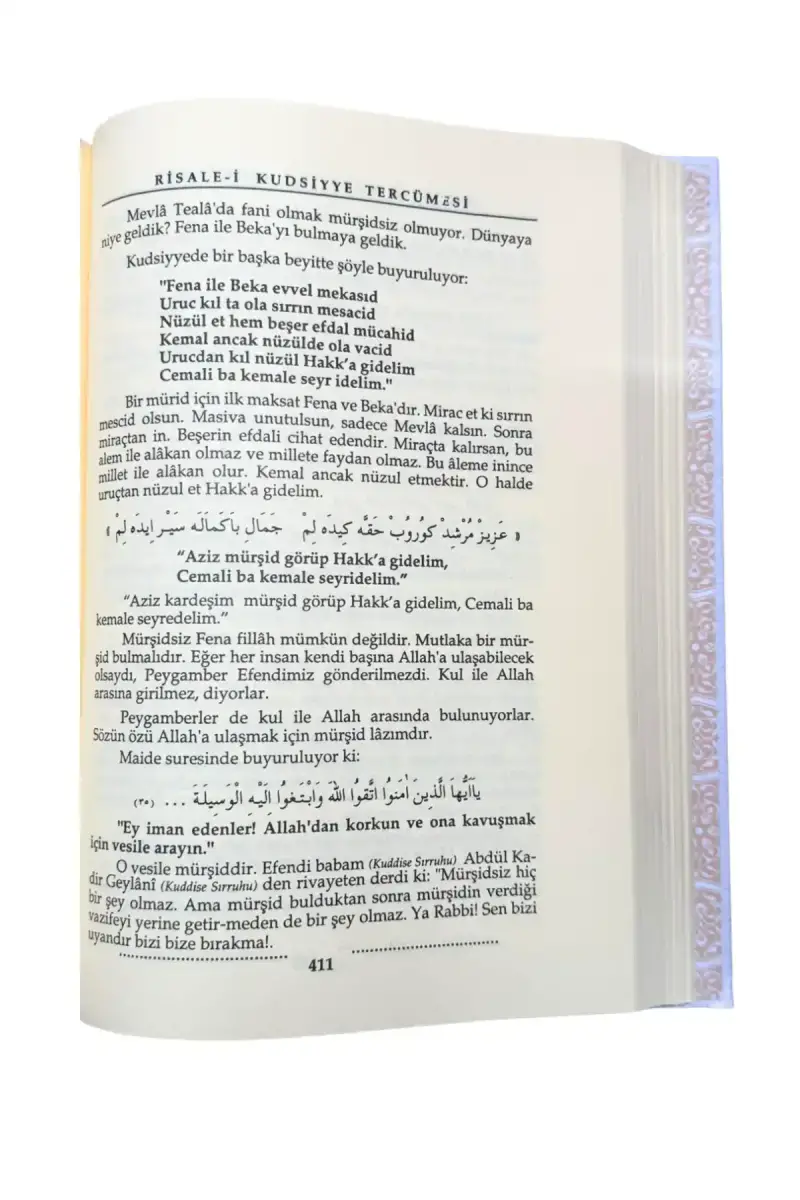 RİSALE-İ KUDSİYYE TERCÜMESİ
Mevlâ Tealâ'da fani olmak mürşidsiz olmuyor. Dünyaya
niye geldik? Fena ile Beka'yı bulmaya geldik.
Kudsiyyede bir başka beyitte şöyle buyuruluyor:
"Fena ile Beka evvel mekasıd
Uruc kıl ta ola sırrın mesacid
Nüzül et hem beşer efdal mücahid
Kemal ancak nüzülde ola vacid
Urucdan kıl nüzül Hakk'a gidelim
Cemali ba kemale seyr idelim."
Bir mürid için ilk maksat Fena ve Beka'dır. Mirac et ki sırrın
mescid olsun. Masiva unutulsun, sadece Mevlâ kalsın. Sonra
miraçtan in. Beşerin efdali cihat edendir. Miraçta kalırsan, bu
alem ile alâkan olmaz ve millete faydan olmaz. Bu âleme inince
millet ile alâkan olur. Kemal ancak nüzul etmektir. O halde
uruçtan nüzul et Hakk'a gidelim.
« عَزِيزْ مُرْشِدْ كُورُوبْ حَقَّه كِيدَه لِمْ جَمَالِ بَاكَمَالَه سَيْرِ ايدَه لِمْ »
"Aziz mürşid görüp Hakk'a gidelim,
Cemali ba kemale seyridelim."
"Aziz kardeşim mürşid görüp Hakk'a gidelim, Cemali ba
kemale seyredelim."
Mürşidsiz Fena fillâh mümkün değildir. Mutlaka bir mür-
şid bulmalıdır. Eğer her insan kendi başına Allah'a ulaşabilecek
olsaydı, Peygamber Efendimiz gönderilmezdi. Kul ile Allah
arasına girilmez, diyorlar.
Peygamberler de kul ile Allah arasında bulunuyorlar.
Sözün özü Allah'a ulaşmak için mürşid lâzımdır.
Maide suresinde buyuruluyor ki:
يَااَيُّهَا الَّذِينَ اٰمَنُوا اتَّقُوا اللّٰهَ وَابْتَغُوا اِلَيْهِ الْوَسِيلَةَ ... (٣٥)
"Ey iman edenler! Allah'dan korkun ve ona kavuşmak
için vesile arayın."
O vesile mürşiddir. Efendi babam (Kuddise Sırruhu) Abdül Ka-
dir Geylânî (Kuddise Sırruhu) den rivayeten derdi ki: "Mürşidsiz hiç
bir şey olmaz. Ama mürşid bulduktan sonra mürşidin verdiği
vazifeyi yerine getir-meden de bir şey olmaz. Ya Rabbi! Sen bizi
uyandır bizi bize bırakma!.
411